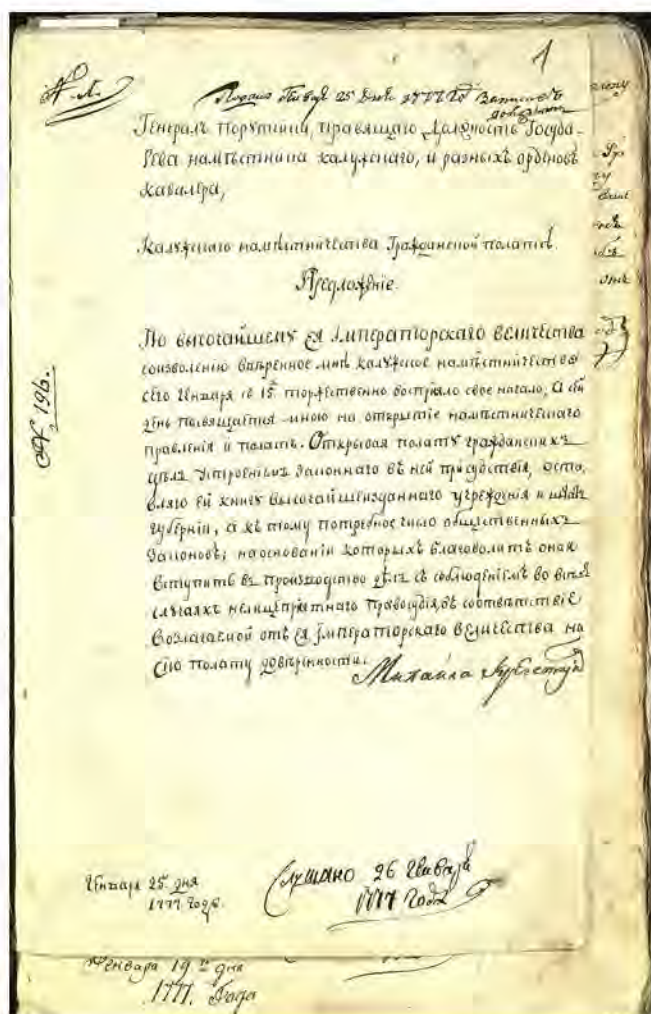 1
Подано Генваря 25 дня 1777 год Записавъ
Генералъ Порутчика, правящаго должность Госуда-
рева намѣстника калужскаго, и разныхъ орденовъ
кавалера,
Калужскаго намѣстничества Гражданской полатѣ.
Предложѣніе.
По высочайшему ея Императорскаго величества
соизволению ввѣренное мнѣ калужское намѣстничество
сего Генваря съ 15го торжественно воспріяло свое начало, а сей
день посвящается мною на открытие намѣстническаго
правления и полатъ. Открывая полату гражданскихъ
дѣлъ устроениемъ законнаго въ ней присудствія, оста-
вляю ей книгу высочайшеизданнаго учрежденія о
губерніи, а къ тому потребное число общественныхъ
законовъ; на основании которыхъ благоволитъ оная
вступить въ производство дѣлъ съ соблюдениемъ во всѣхъ
случаяхъ нелицеприятнаго правосудія, въ соотвѣтствие
возлагаемой отъ ея Императорскаго величества на
сию полату довѣренности.
Михаила Кречетн
№ 196.
Генваря 25 дня
1777 года.
Слушано 26 Генваря
1777 Года
Генваря 19го дня
1777. Года